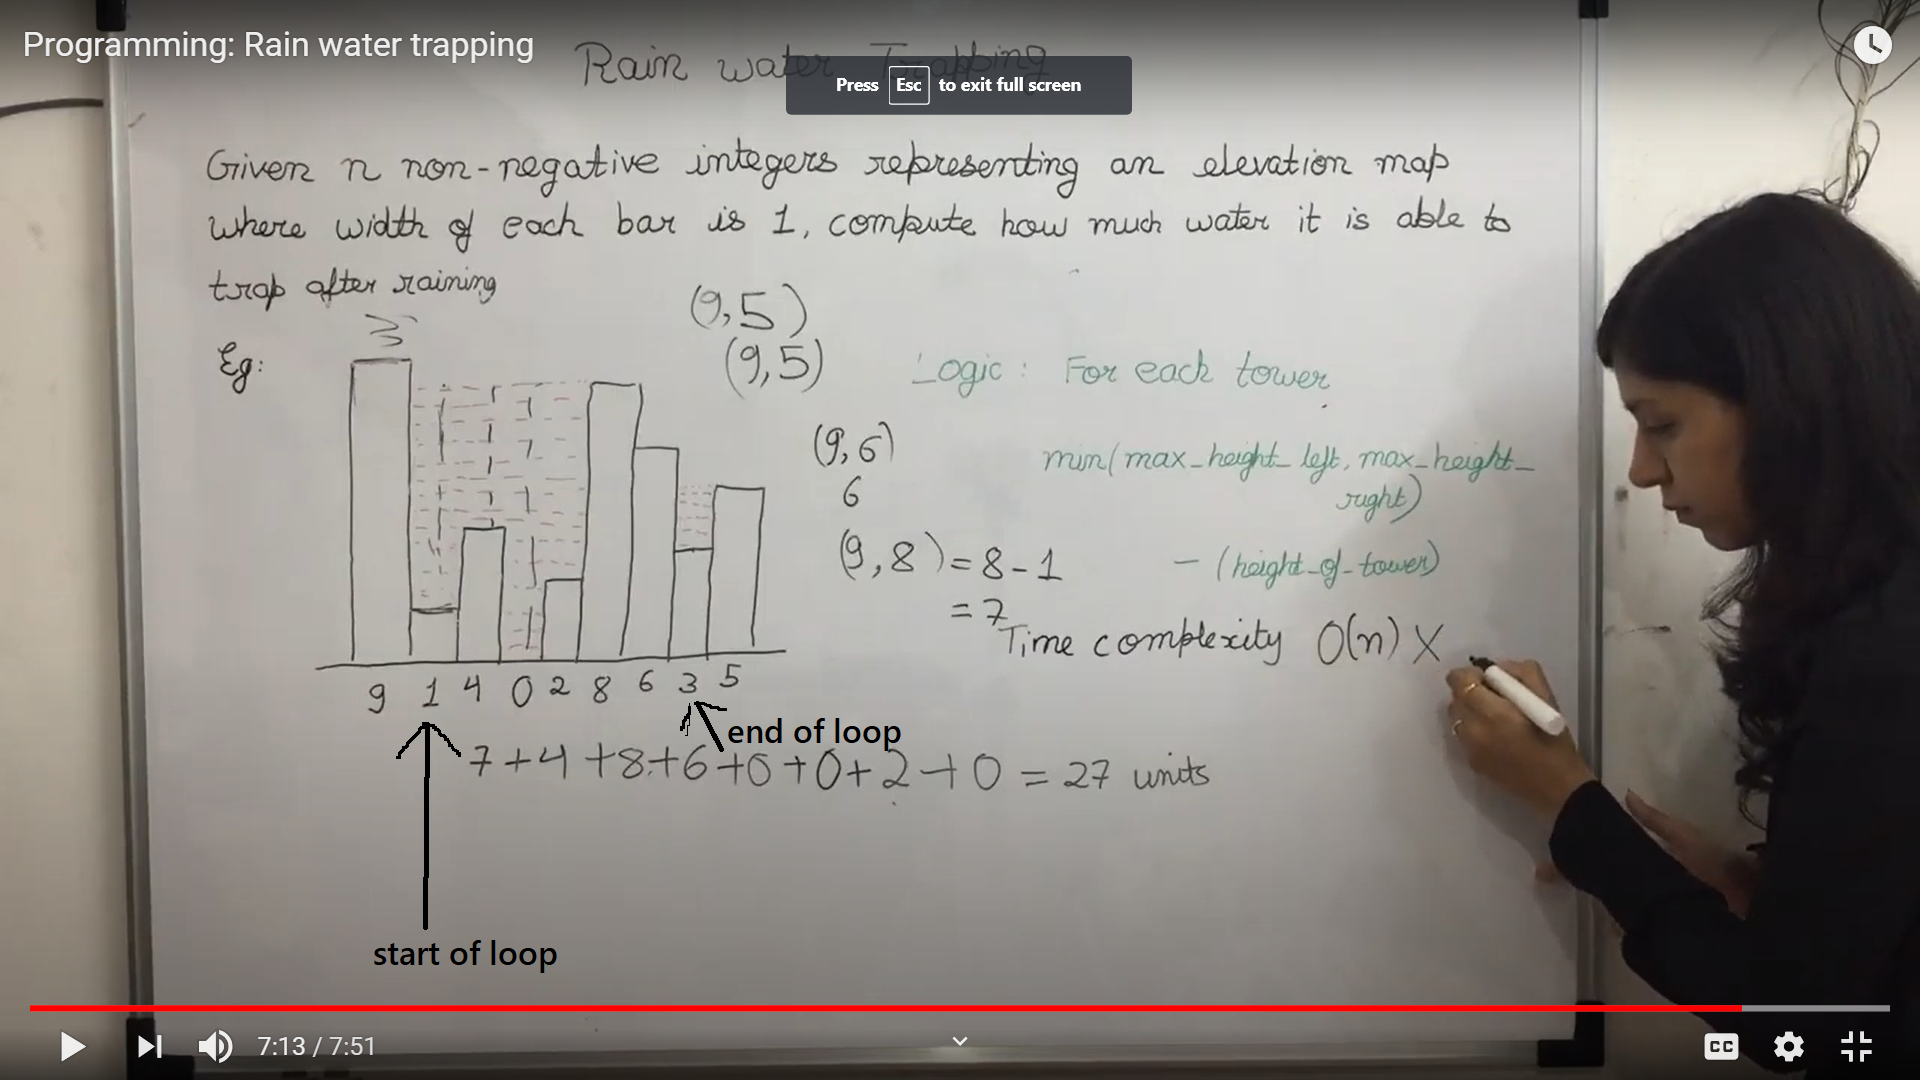 Programming: Rain water trapping
Rain water Trapping
Press Esc to exit full screen
Given n non-negative integers representing an elevation map
where width of each bar is 1, compute how much water it is able to
trap after raining
(9,5)
(9,5)
Eg:
Logic: For each tower
(9,6)
6
min(max_height_left, max_height_
right)
(9,8) = 8-1
- (height_of_tower)
= 7
Time complexity O(n) X
9 1 4 0 2 8 6 3 5
end of loop
7+4+8+6+0+0+2+0 = 27 units
start of loop
7:13 / 7:51
CC